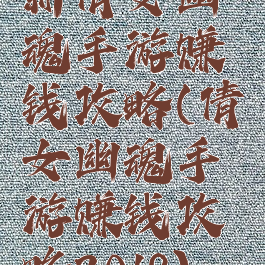 新倩女幽
魂手游赚
钱攻略(倩
女幽魂手
游赚钱攻